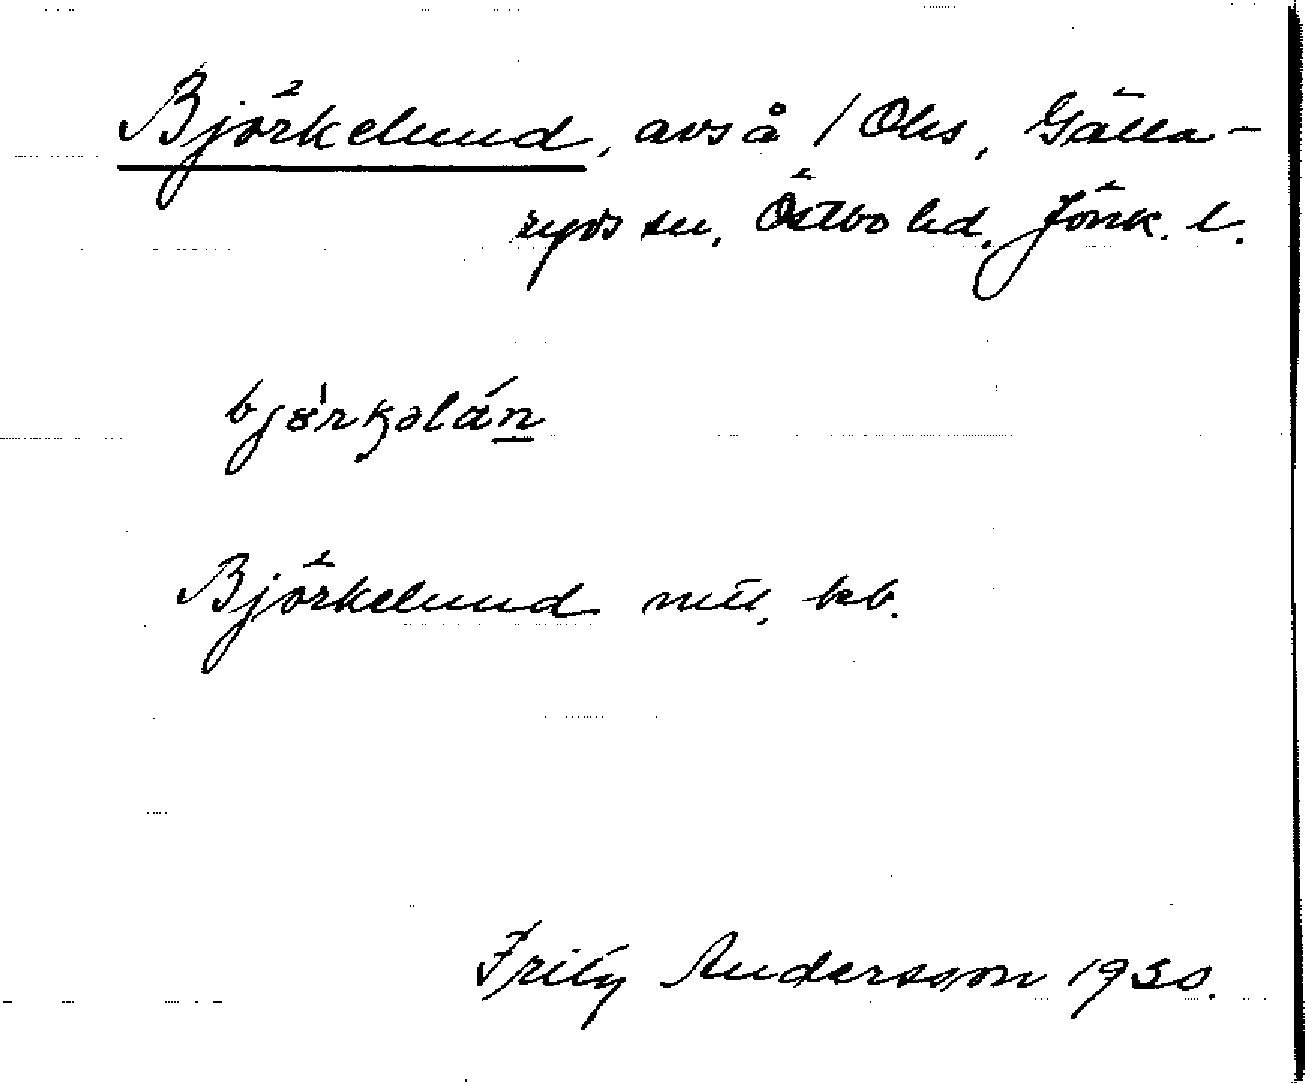 Björkelund, avs å / Ohs, Gälla-
ryds sn, Östbo hd, Jönk. l.
Björkelund mtl, kb.
Fritz Andersson 1930.